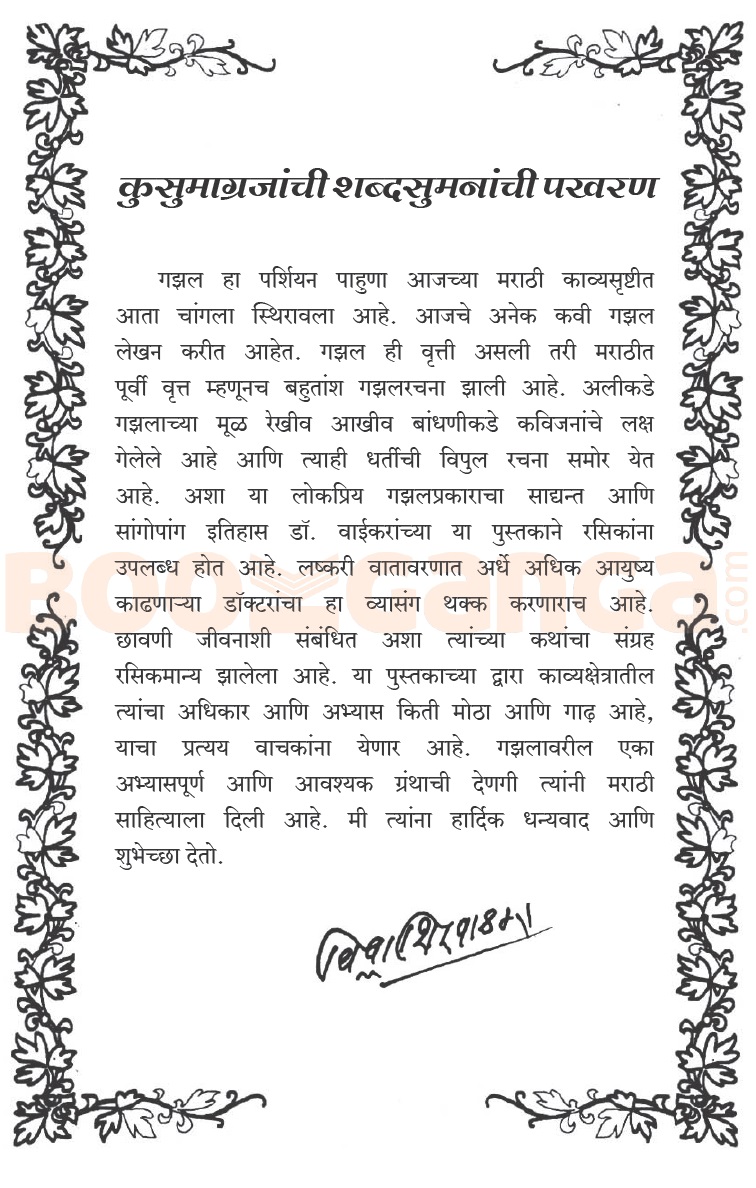 कुसुमाग्रजांची शब्दसुमनांची पखरण
गझल हा पर्शियन पाहुणा आजच्या मराठी काव्यसृष्टीत
आता चांगला स्थिरावला आहे. आजचे अनेक कवी गझल
लेखन करीत आहेत. गझल ही वृत्ती असली तरी मराठीत
पूर्वी वृत्त म्हणूनच बहुतांश गझलरचना झाली आहे. अलीकडे
गझलाच्या मूळ रेखीव आखीव बांधणीकडे कविजनांचे लक्ष
गेलेले आहे आणि त्याही धर्तीची विपुल रचना समोर येत
आहे. अशा या लोकप्रिय गझलप्रकाराचा साद्यन्त आणि
सांगोपांग इतिहास डॉ. वाईकरांच्या या पुस्तकाने रसिकांना
उपलब्ध होत आहे. लष्करी वातावरणात अर्धे अधिक आयुष्य
काढणाऱ्या डॉक्टरांचा हा व्यासंग थक्क करणाराच आहे.
छावणी जीवनाशी संबंधित अशा त्यांच्या कथांचा संग्रह
रसिकमान्य झालेला आहे. या पुस्तकाच्या द्वारा काव्यक्षेत्रातील
त्यांचा अधिकार आणि अभ्यास किती मोठा आणि गाढ़ आहे,
याचा प्रत्यय वाचकांना येणार आहे. गझलावरील एका
अभ्यासपूर्ण आणि आवश्यक ग्रंथाची देणगी त्यांनी मराठी
साहित्याला दिली आहे. मी त्यांना हार्दिक धन्यवाद आणि
शुभेच्छा देतो.
BOOKganga.com